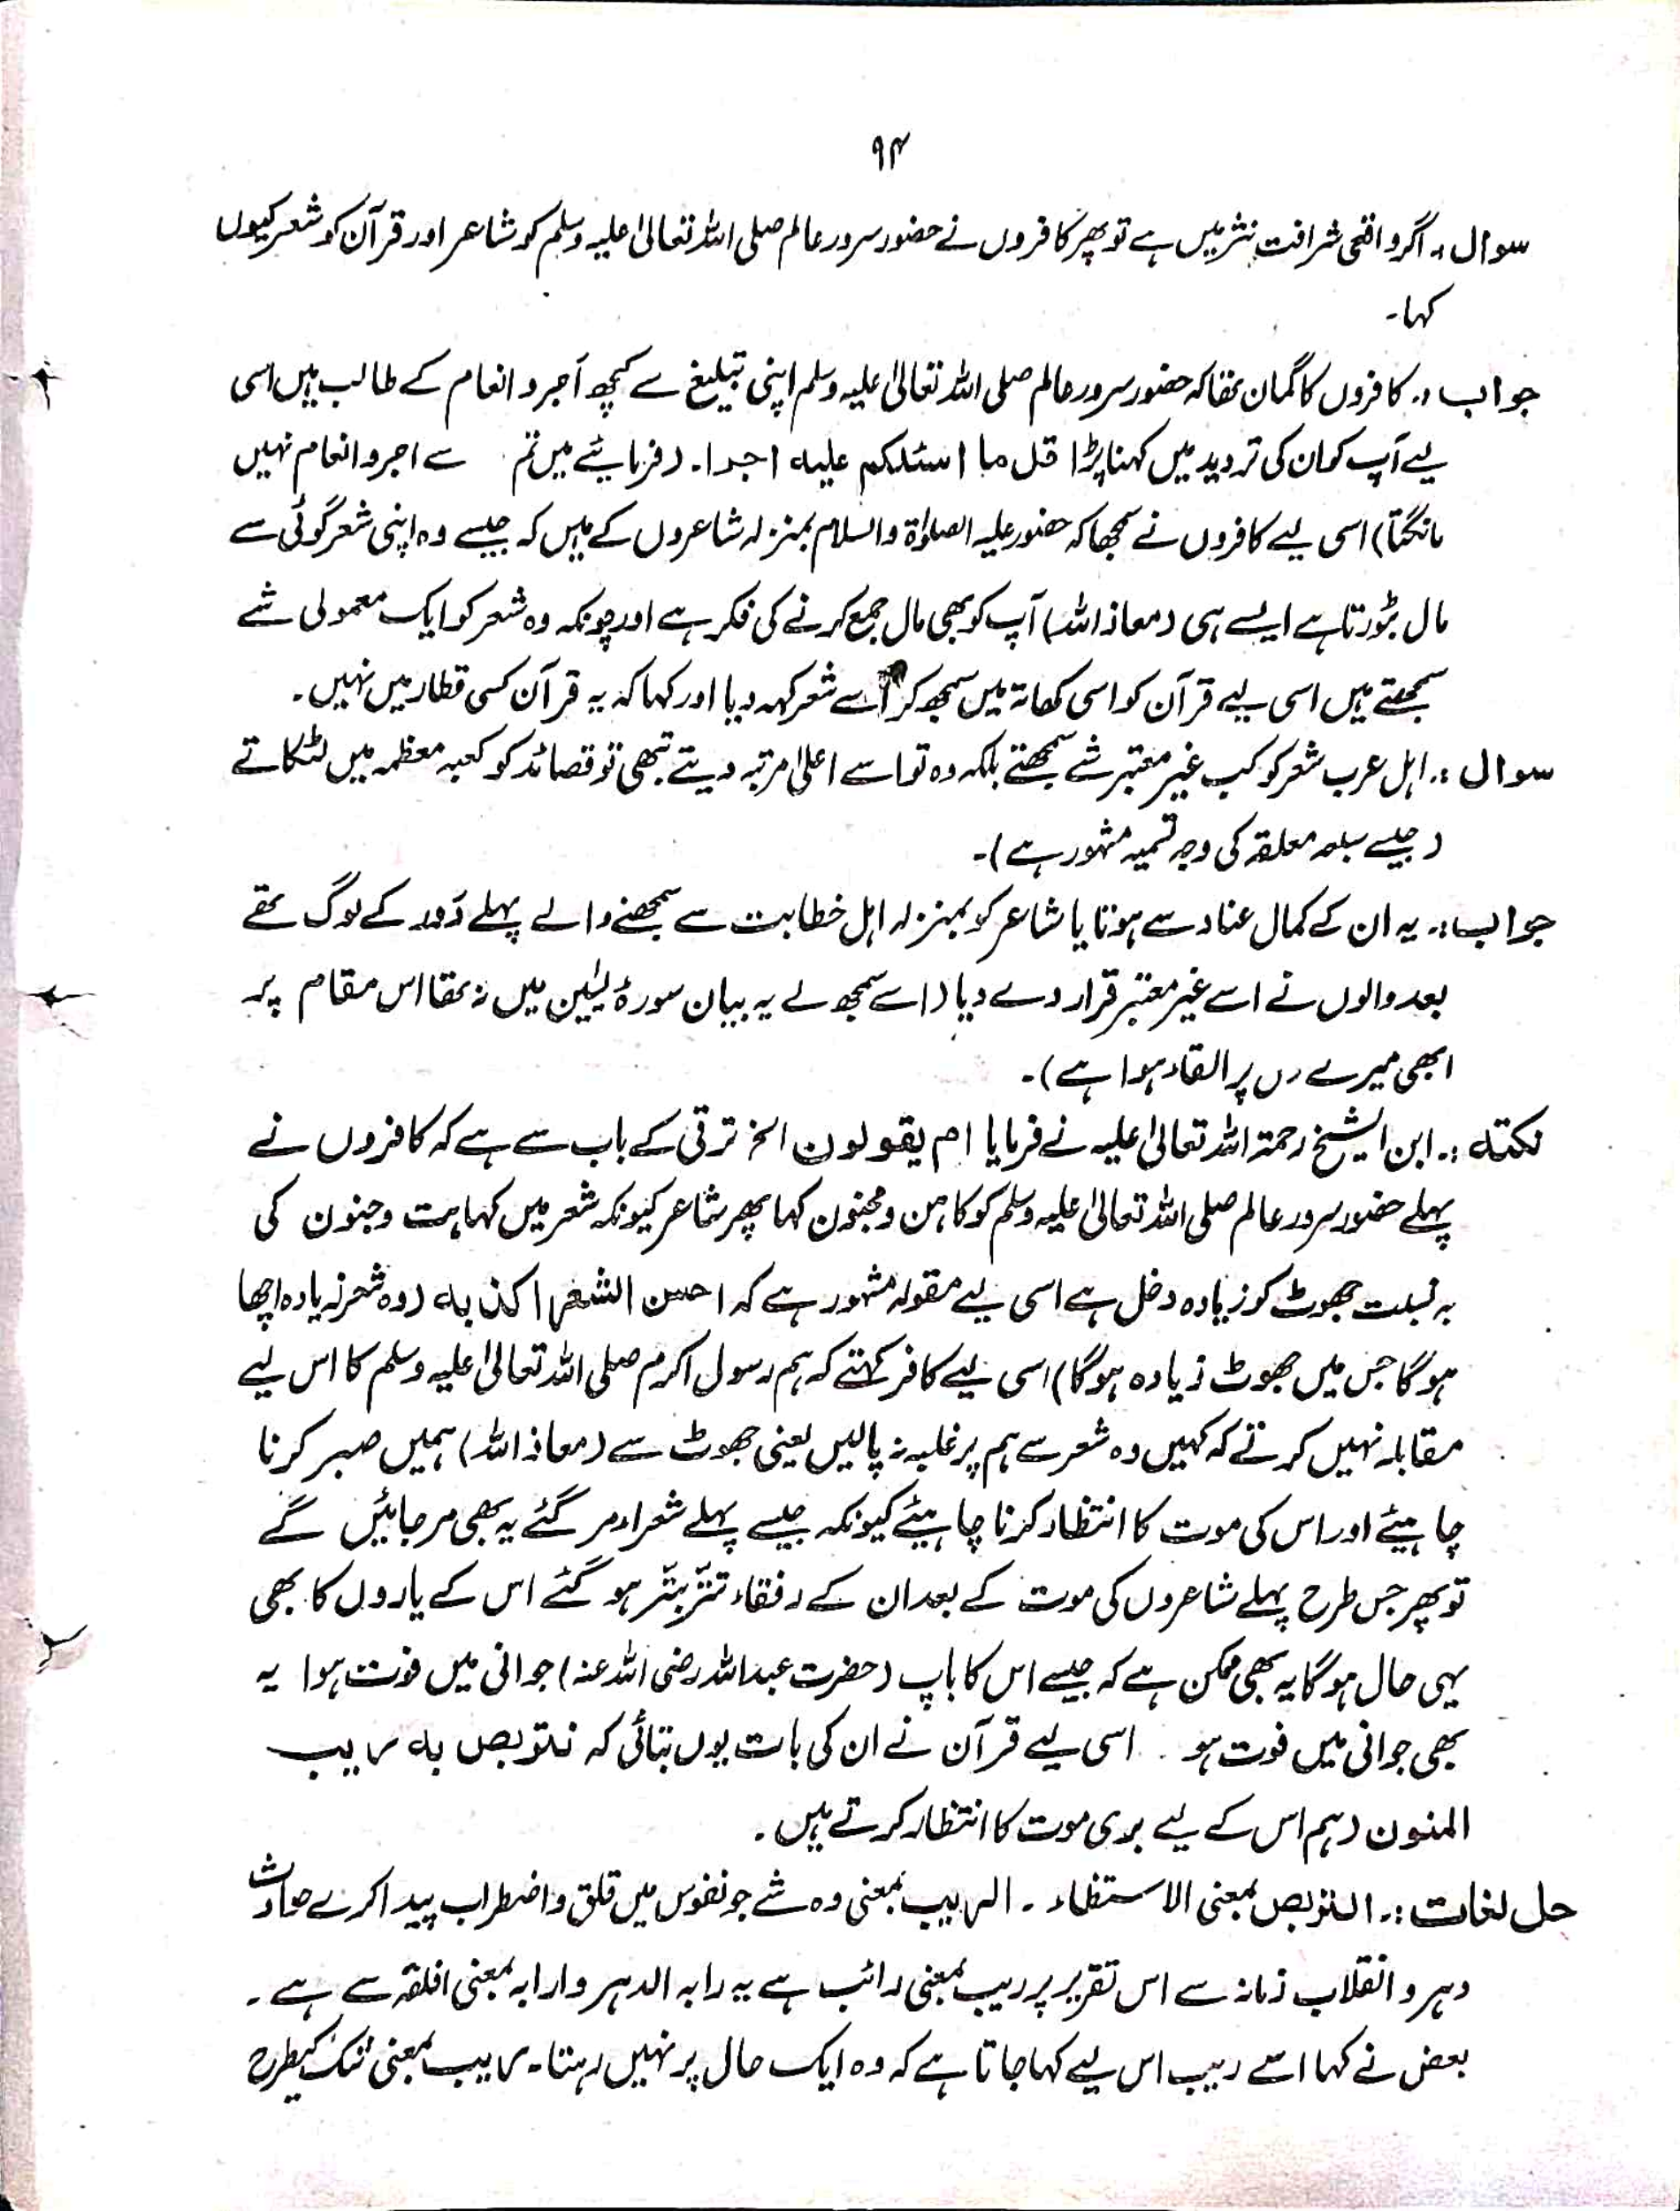 ۹۴
سوال :۔ اگر واقعی شرافت نثر میں ہے تو پھر کافروں نے حضور سرور عالم صلی اللہ تعالیٰ علیہ وسلم کو شاعر اور قرآن کو شعر کیوں
کہا۔
جواب :۔ کافروں کا گمان تھا کہ حضور سرور عالم صلی اللہ تعالیٰ علیہ وسلم اپنی تبلیغ سے کچھ اَجر و انعام کے طالب ہیں اسی
لیے آپ کو ان کی تردید میں کہنا پڑا قل ما اسئلکم علیہ اجرا۔ (فرمائیے میں تم سے اجر و انعام نہیں
مانگتا) اسی لیے کافروں نے سمجھا کہ حضور علیہ الصلوٰۃ والسلام بمنزلہ شاعروں کے ہیں کہ جیسے وہ اپنی شعر گوئی سے
مال بٹورتا ہے ایسے ہی (معاذ اللہ) آپ کو بھی مال جمع کرنے کی فکر ہے اور چونکہ وہ شعر کو ایک معمولی شے
سمجھتے ہیں اسی لیے قرآن کو اسی کھاتہ میں سمجھ کر اسے شعر کہہ دیا اور کہا کہ یہ قرآن کسی قطار میں نہیں۔
سوال :۔ اہل عرب شعر کو کب غیر معتبر شے سمجھتے بلکہ وہ تو اسے اعلیٰ مرتبہ دیتے تبھی تو قصائد کو کعبہ معظمہ میں لٹکاتے
(جیسے سبعہ معلقہ کی وجہ تسمیہ مشہور ہے)۔
جواب :۔ یہ ان کے کمال عناد سے ہوتا یا شاعر کو بمنزلہ اہل خطابت سے سمجھنے والے پہلے دَور کے لوگ تھے
بعد والوں نے اسے غیر معتبر قرار دے دیا (اسے سمجھ لے یہ بیان سورۂ یٰسین میں نہ تھا اس مقام پر
ابھی میرے دل پر القاء ہوا ہے)۔
نکتہ :۔ ابن الشیخ رحمۃ اللہ تعالیٰ علیہ نے فرمایا ام یقولون الخ ترقی کے باب سے ہے کہ کافروں نے
پہلے حضور سرور عالم صلی اللہ تعالیٰ علیہ وسلم کو کاہن و مجنون کہا پھر شاعر کیونکہ شعر میں کہانت و جنون کی
بہ نسبت جھوٹ کو زیادہ دخل ہے اسی لیے مقولہ مشہور ہے کہ احسن الشعر اکذبہ (وہ شعر زیادہ اچھا
ہوگا جس میں جھوٹ زیادہ ہوگا) اسی لیے کافر کہتے کہ ہم رسول اکرم صلی اللہ تعالیٰ علیہ وسلم کا اس لیے
مقابلہ نہیں کرتے کہ کہیں وہ شعر سے ہم پر غلبہ نہ پالیں یعنی جھوٹ سے (معاذ اللہ) ہمیں صبر کرنا
چاہیئے اور اس کی موت کا انتظار کرنا چاہیئے کیونکہ جیسے پہلے شعراء مر گئے یہ بھی مر جائیں گے
تو پھر جس طرح پہلے شاعروں کی موت کے بعد ان کے رفقاء تتّر بتّر ہو گئے اس کے یاروں کا بھی
یہی حال ہوگا یہ بھی ممکن ہے کہ جیسے اس کا باپ (حضرت عبداللہ رضی اللہ عنہ) جوانی میں فوت ہوا یہ
بھی جوانی میں فوت ہو اسی لیے قرآن نے ان کی بات یوں بتائی کہ نتربص بہ ریب
المنون (ہم اس کے لیے بری موت کا انتظار کرتے ہیں۔
حل لغات :۔ التربص بمعنی الاستنظار۔ الریب بمعنی وہ شے جو نفوس میں قلق و اضطراب پیدا کرے حوادث
دہر و انقلاب زمانہ سے اس تقریر پر ریب بمعنی رائب ہے یہ رابہ الدہر و ارابہ بمعنی اقلقہ سے ہے۔
بعض نے کہا اسے ریب اس لیے کہا جاتا ہے کہ وہ ایک حال پر نہیں رہتا۔ ریب بمعنی شک کیطرح